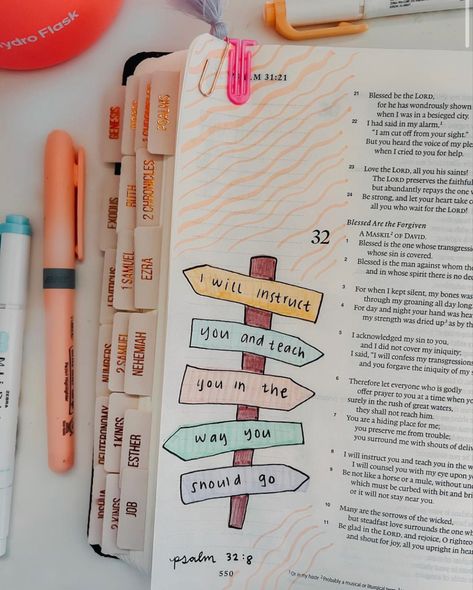 Hydro Flask
GENESIS
EXODUS
LEVITICUS
NUMBERS
DEUTERONOMY
JOSHUA
RUTH
1 SAMUEL
2 SAMUEL
1 KINGS
2 KINGS
1 CHRONICLES
2 CHRONICLES
EZRA
NEHEMIAH
ESTHER
JOB
PSALMS
PSALM 31:21
21 Blessed be the LORD,
for he has wondrously shown
when I was in a besieged city.
22 I had said in my alarm,
"I am cut off from your sight."
But you heard the voice of my
when I cried to you for help.
23 Love the LORD, all you his saints!
The LORD preserves the faithful
but abundantly repays the one
24 Be strong, and let your heart take
all you who wait for the LORD!
Blessed Are the Forgiven
32 A MASKIL OF DAVID.
1 Blessed is the one whose
whose sin is covered.
2 Blessed is the man against whom
and in whose spirit there is no
3 For when I kept silent, my bones
through my groaning all day
4 For day and night your hand was
my strength was dried up as by
5 I acknowledged my sin to you,
and I did not cover my iniquity;
I said, "I will confess my
and you forgave the iniquity of my
6 Therefore let everyone who is godly
offer prayer to you at a time when
surely in the rush of great waters,
they shall not reach him.
7 You are a hiding place for me;
you preserve me from trouble;
you surround me with shouts of
8 I will instruct you and teach you in the
I will counsel you with my eye upon
9 Be not like a horse or a mule, without
which must be curbed with bit and
or it will not stay near you.
10 Many are the sorrows of the wicked,
but steadfast love surrounds the one
11 Be glad in the LORD, and rejoice, O
and shout for joy, all you upright in
I will instruct
you and teach
you in the
way you
should go
psalm 32:8
550